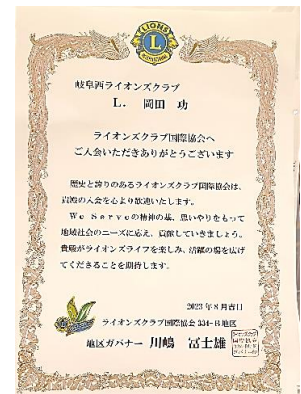 LIONS
L
岐阜西ライオンズクラブ
L. 岡田 功
ライオンズクラブ国際協会へ
ご入会いただきありがとうございます
歴史と誇りのあるライオンズクラブ国際協会は、
貴殿の入会を心より歓迎いたします。
We Serveの精神の基、思いやりをもって
地域社会のニーズに応え、貢献していきましょう。
貴殿がライオンズライフを楽しみ、活躍の場を広げ
てくださることを期待します。
2023年8月吉日
ライオンズクラブ国際協会334-B地区
地区ガバナー 川嶋 冨士雄